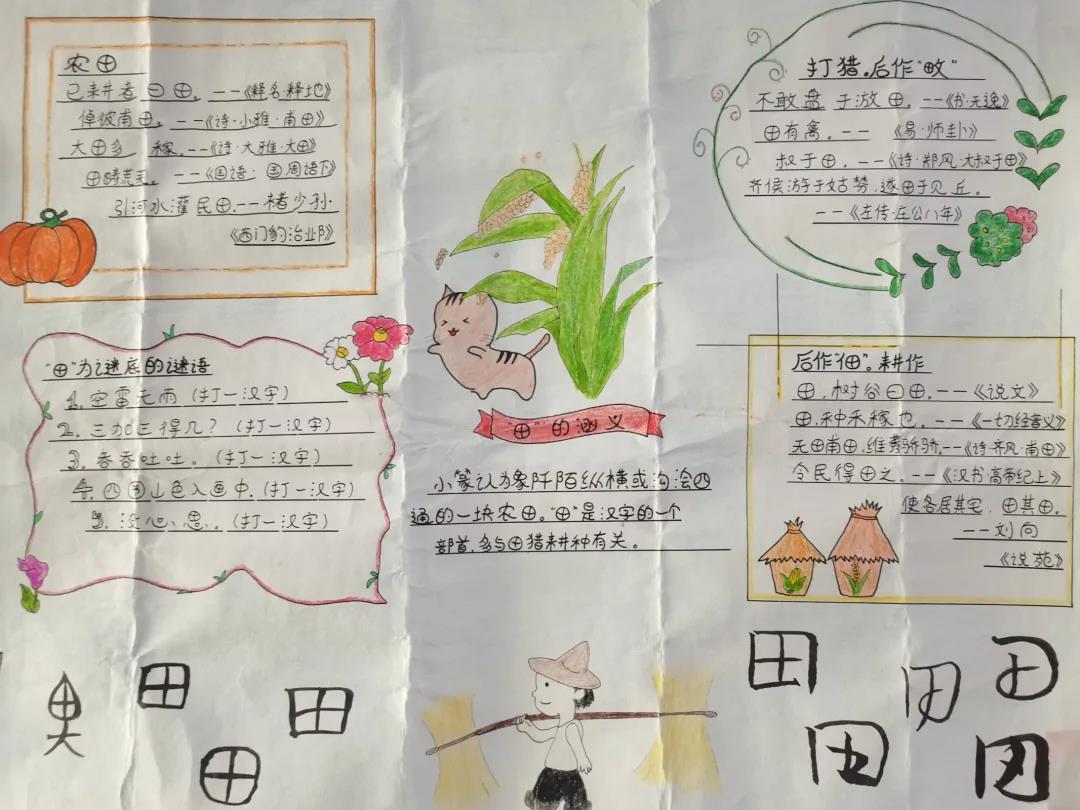 农田
已耕者曰田。——《释名·释地》
倬彼甫田。——《诗·小雅·甫田》
大田多 稼。——《诗·大雅·大田》
田畴荒芜。——《国语·周语下》
引河水灌民田.——褚少孙
《西门豹治邺》
打猎。后作“畋”
不敢盘于游田。——《书·无逸》
田有禽。—— 《易·师卦》
叔于田。——《诗·郑风·大叔于田》
齐侯游于姑棼,遂田于贝丘。
——《左传·庄公八年》
“田”为谜底的谜语
1.空雷无雨(打一汉字)
2.三加三得几?(打一汉字)
3.吞吞吐吐。(打一汉字)
4.四围山色入画中.(打一汉字)
5.没心思。(打一汉字)
“田”的涵义
小篆认为象阡陌纵横或沟浍四
通的一块农田。“田”是汉字的一个
部首,多与田猎耕种有关。
后作“佃”。耕作
田,树谷曰田。——《说文》
田,种禾稼也。——《一切经音义》
无田甫田,维莠骄骄.——《诗·齐风·甫田》
令民得田之。——《汉书·高帝纪上》
使各居其宅,田其田。
——刘向
《说苑》
田
田
田
田
田
田
田
田